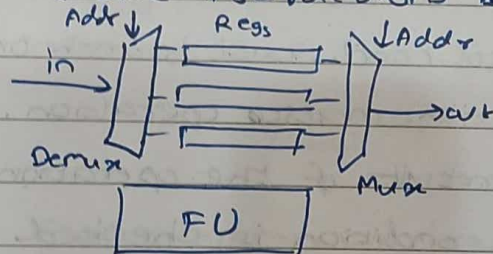 Addr
Regs
Addr
in
out
Demux
Mux
FU